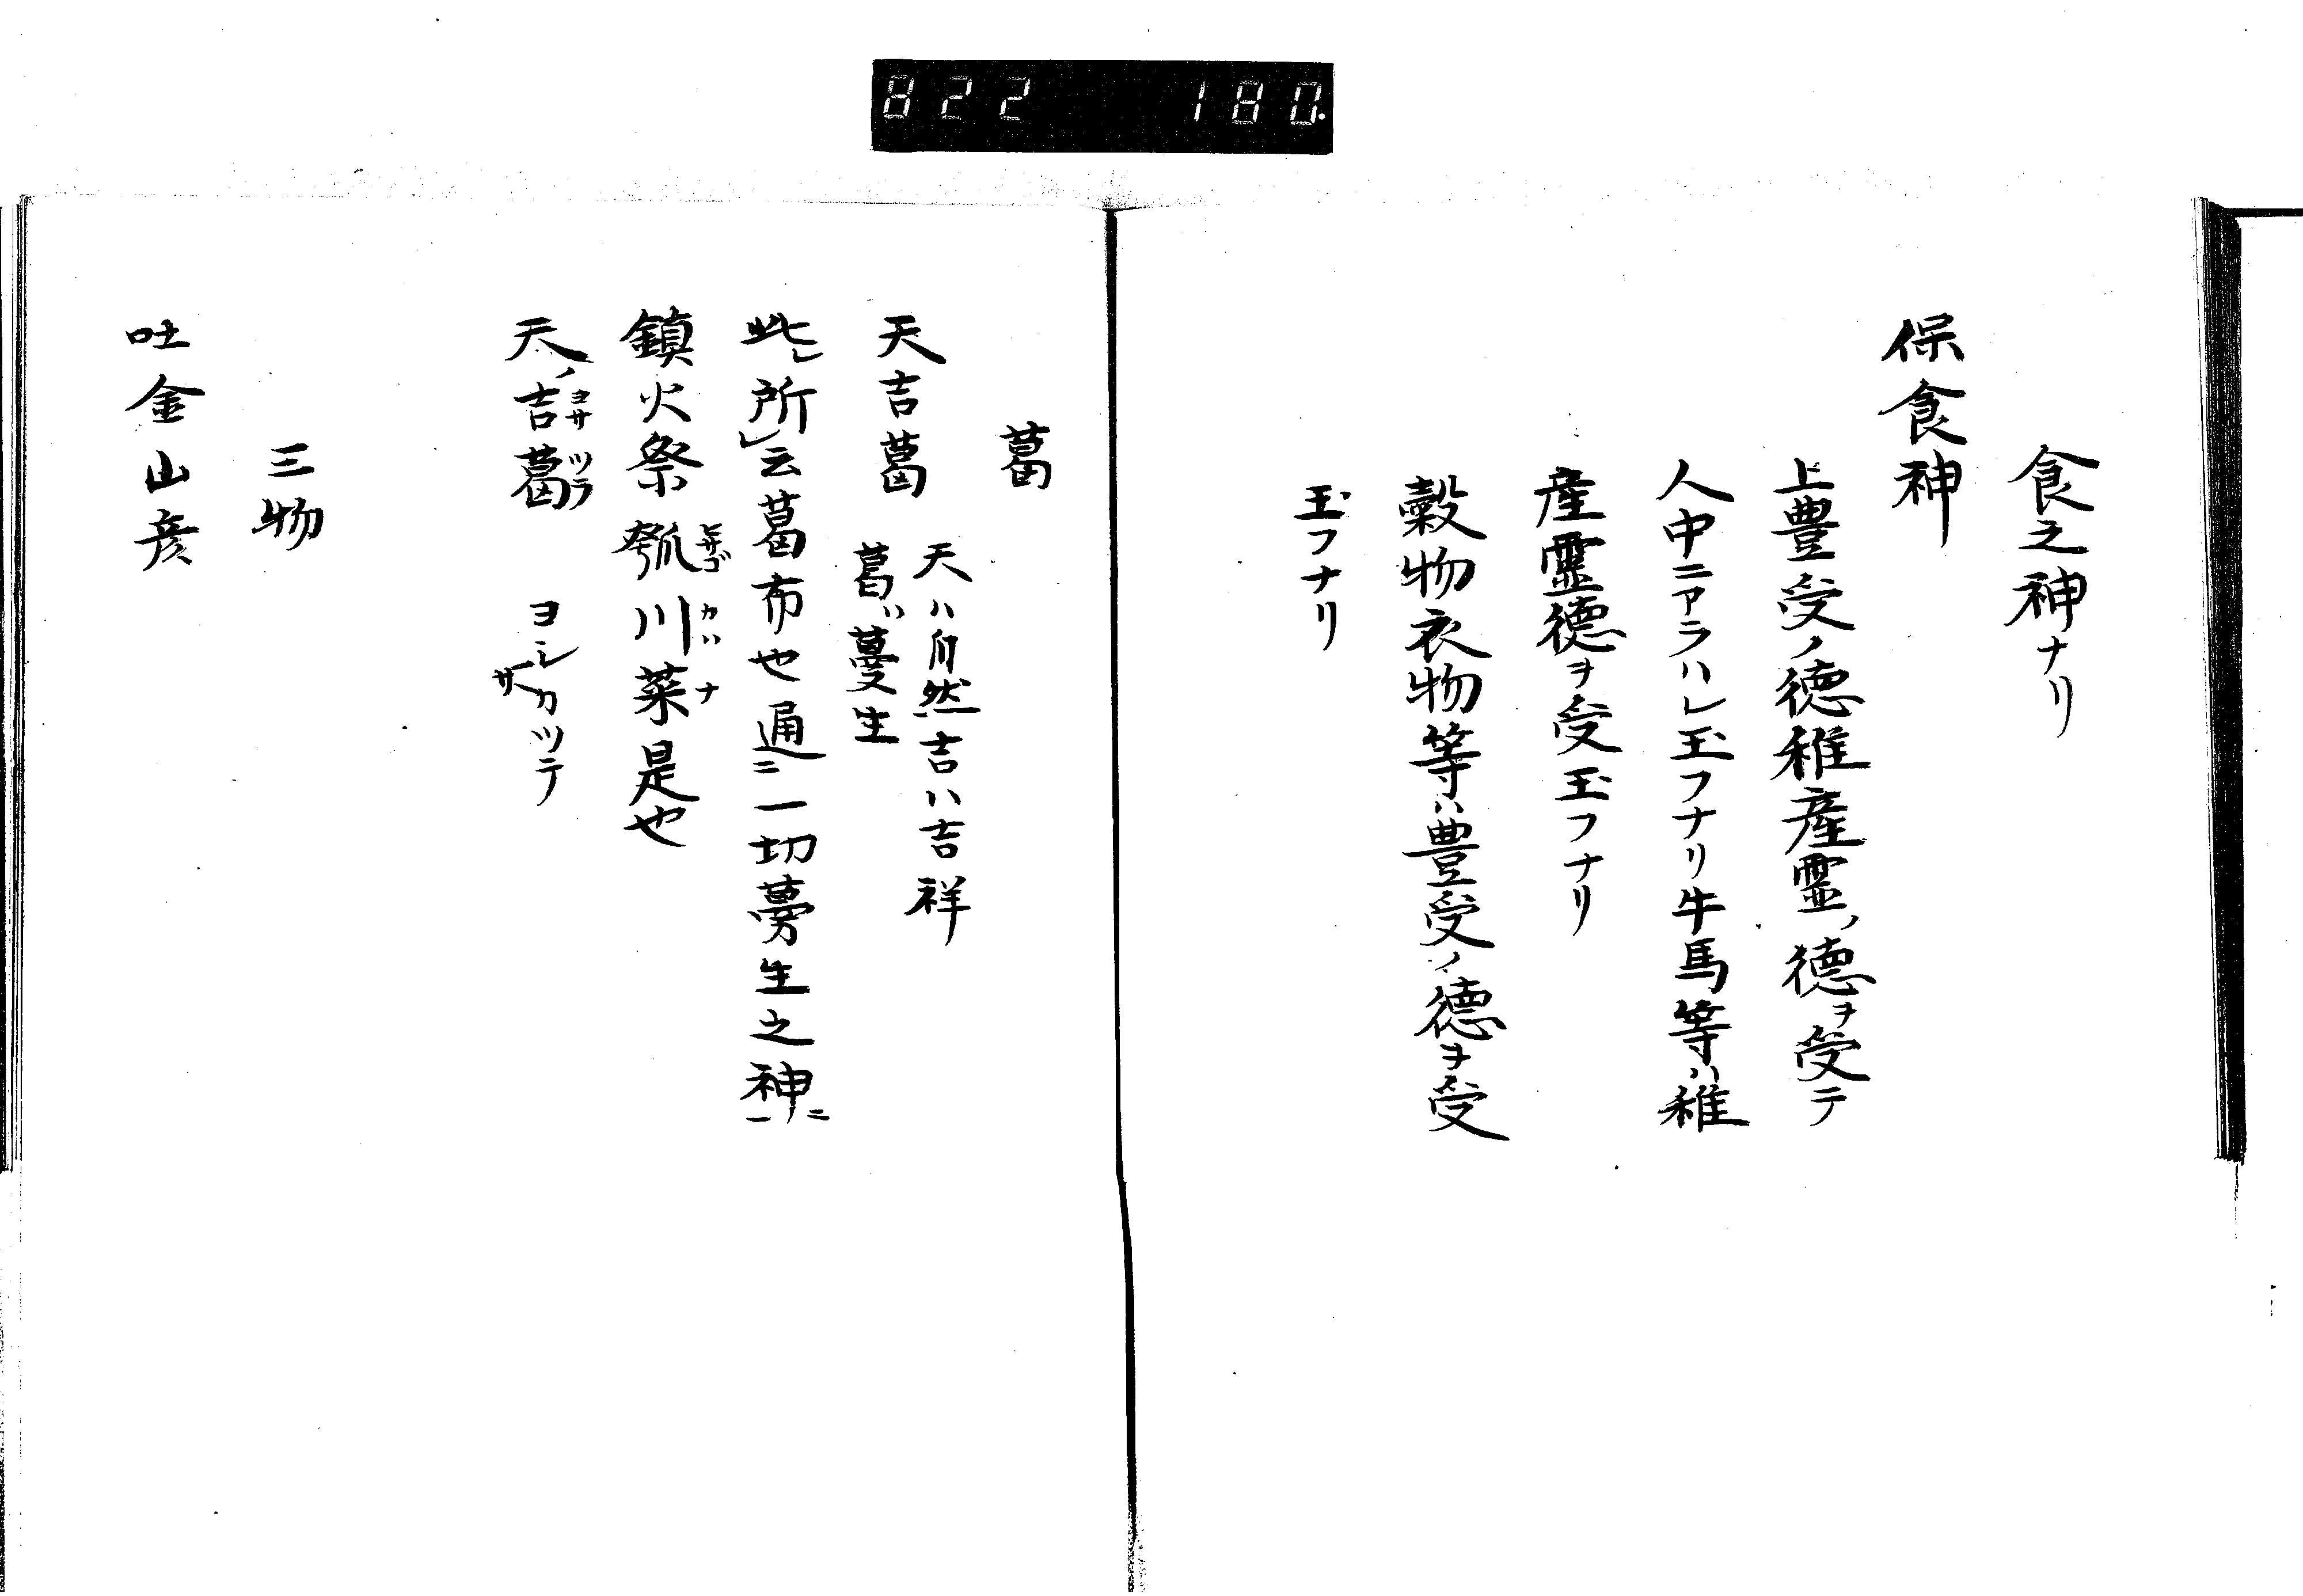 822 180.
食之神ナリ
保食神
上豊受ノ徳稚産霊ノ徳ヲ受テ
人中ニアラハレ玉フナリ牛馬等ハ稚
産霊徳ヲ受玉フナリ
穀物衣物等ハ豊受ノ徳ヲ受
玉フナリ
葛
天吉葛 天ハ自然吉ハ吉祥
葛ハ蔓生
此レ所レ云葛布也通ニ一切蔓生之神ニ一
鎮火祭瓠川菜是也
ヒサゴ カハ ナ
天ノ吉葛 ヨシカツテ
ヨサ ツラ
サ
三物
吐金山彦